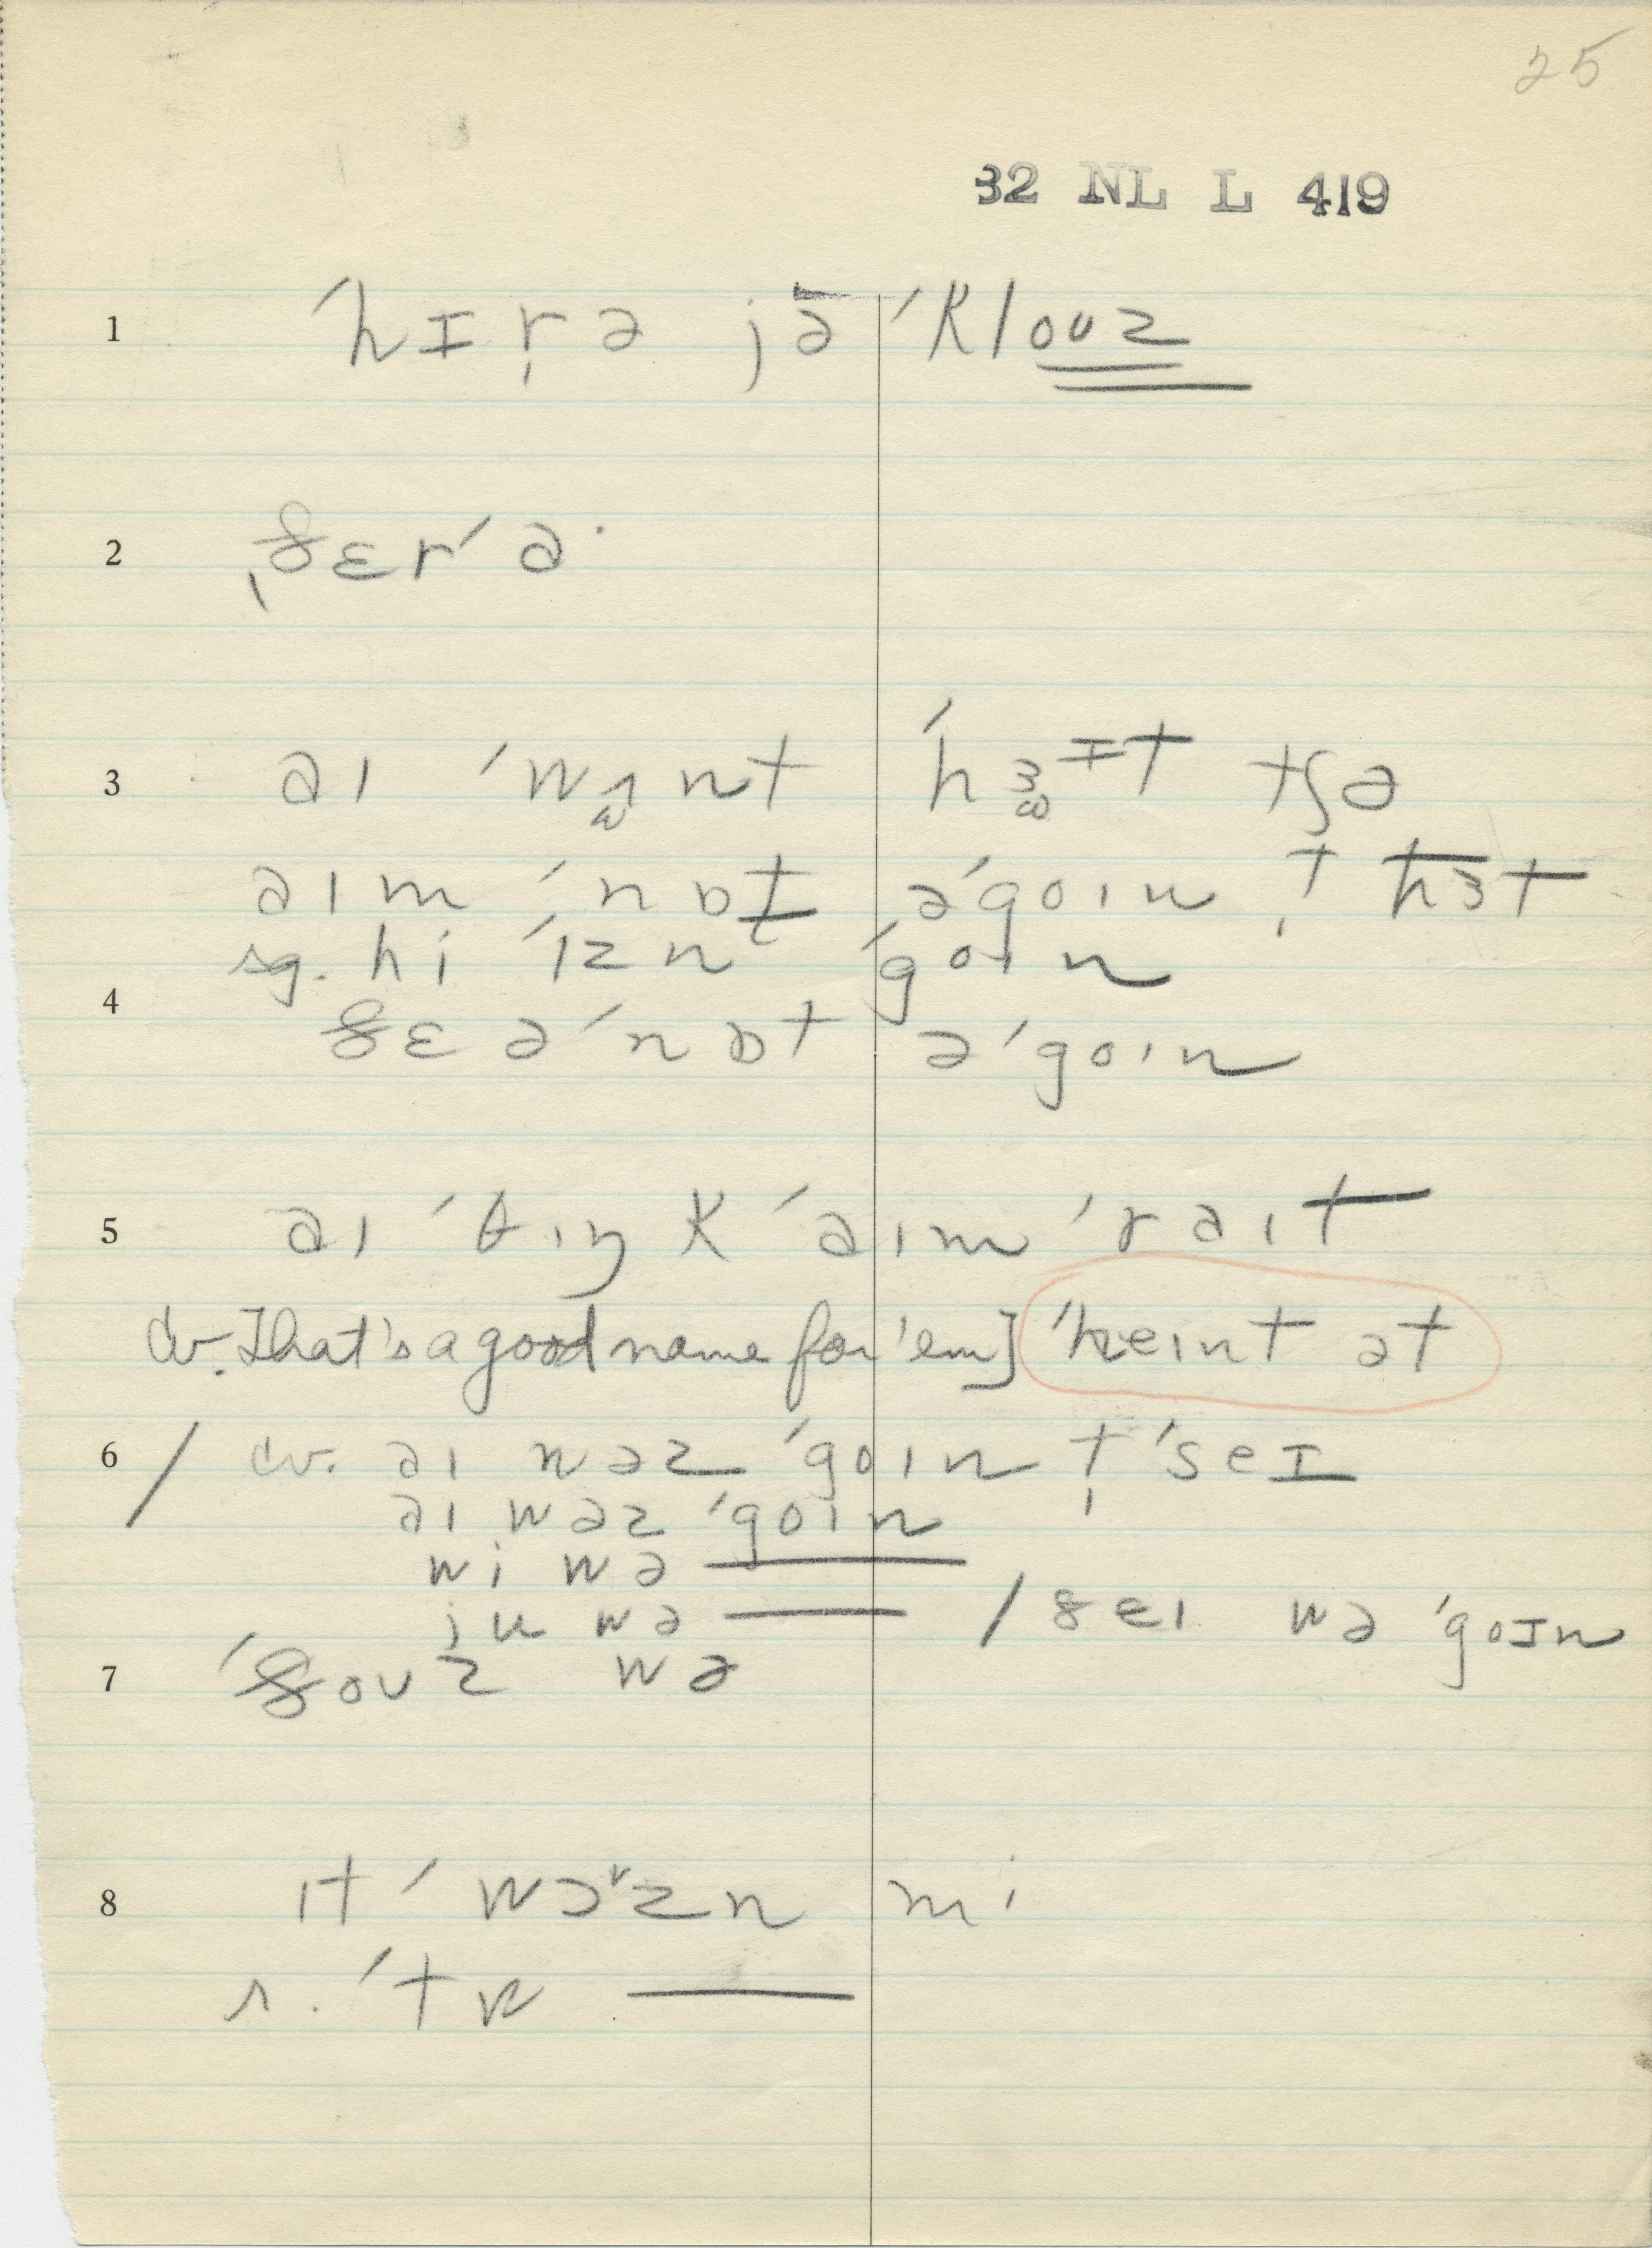 25
32 NL L 419
1 ˈhɪr̩ə jə ˈklouz
2 ˌðɛrˈə·
3
aɪm ˈnɒt əˈgoɪn t̩ hɜt
sg. hi ˈɪzn ˈgoɪn
4 ðɛ əˈnɒt əˈgoɪn
5 aɪ ˈθɪŋk ˈaɪm ˈraɪt
cv. That's a good name for 'em] ˈheɪnt ət
6 / cv. aɪ wəz ˈgoɪn t̩ ˈseɪ
aɪ wəz ˈgoɪn
wi wə ——
ju wə —— / ðeɪ wə ˈgoɪn
7 ˈðouz wə
8 ɪt ˈwəzn mi
r. ˈtɒ ——